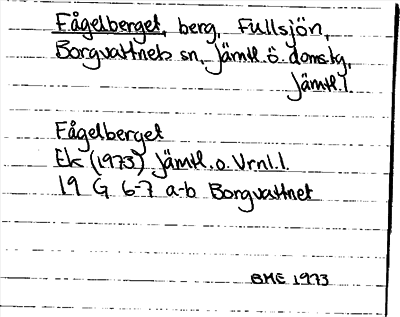 Fågelberget, berg, Fullsjön,
Borgvattnets sn, Jämtl. ö. domsbg,
Jämtl.l.
Fågelberget
Ek (1973) Jämtl. o. Vrnl.l.
19 G 6-7 a-b Borgvattnet
BME 1973